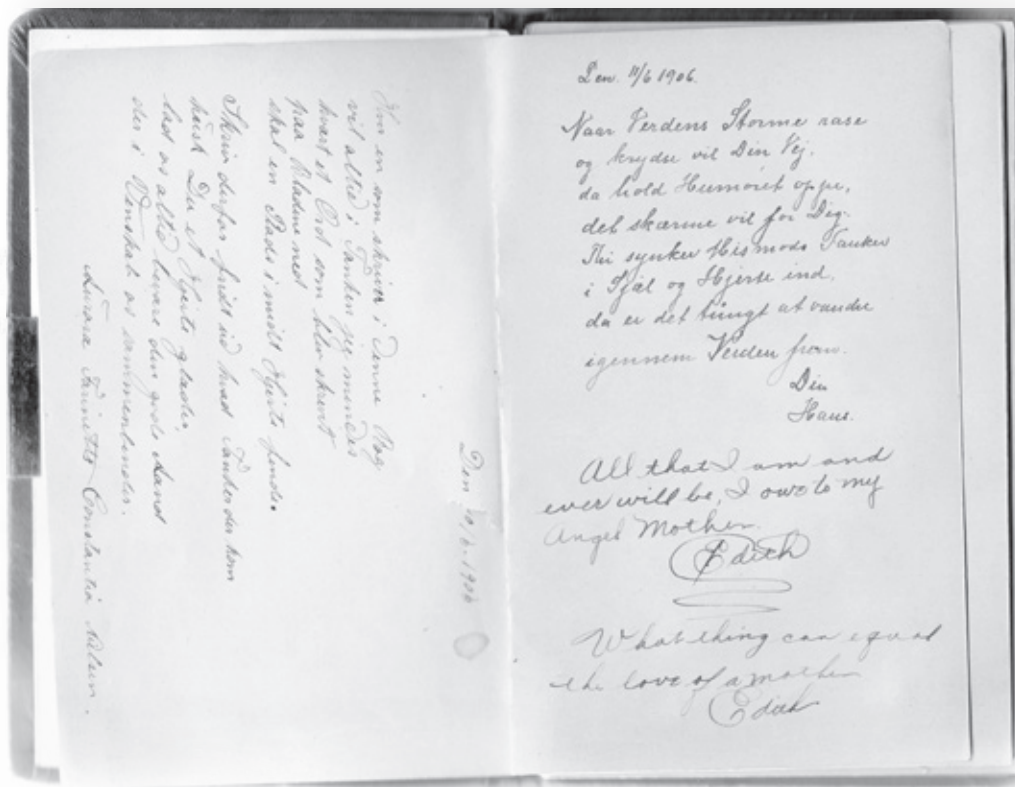 Den 10/6. 1906
Hver en som skriver i denne Bog
vil altid i Tanken jeg mindes
hvert et Ord som blev skrevet
paa Bladene ned
skal en Plads i mit Hjerte finde.
Skriv derfor frit ud hvad Tanker der kom
husk Du et Hjerte glæder,
lad os altid bevare den gode Aand
der i Venskab os sammenbinder.
Aurora Constantia Nielsen.
Den. 11/6 1906.
Naar Verdens Storme rase
og krydse vil Din Vej,
da hold Humøret oppe,
det skærme vil for Dig.
Thi synker Mismods Tanker
i Sjæl og Hjerte ind,
da er det tungt at vandre
igennem Verden frem.
Din
Hans.
All that I am and
ever will be, I owe to my
Angel Mother.
Edith
What thing can equal
the love of a mother
Edith